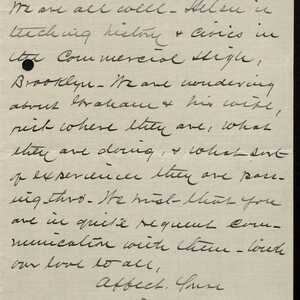 We are all well - Helen is
teaching history & civics in
the Commercial High,
Brooklyn - We are wondering
about Graham & his wife,
just where they are, what
they are doing, & what sort
of experience they are pass-
ing thro - We trust that you
are in quite frequent com-
munication with them - With
our love to all,
Affect.